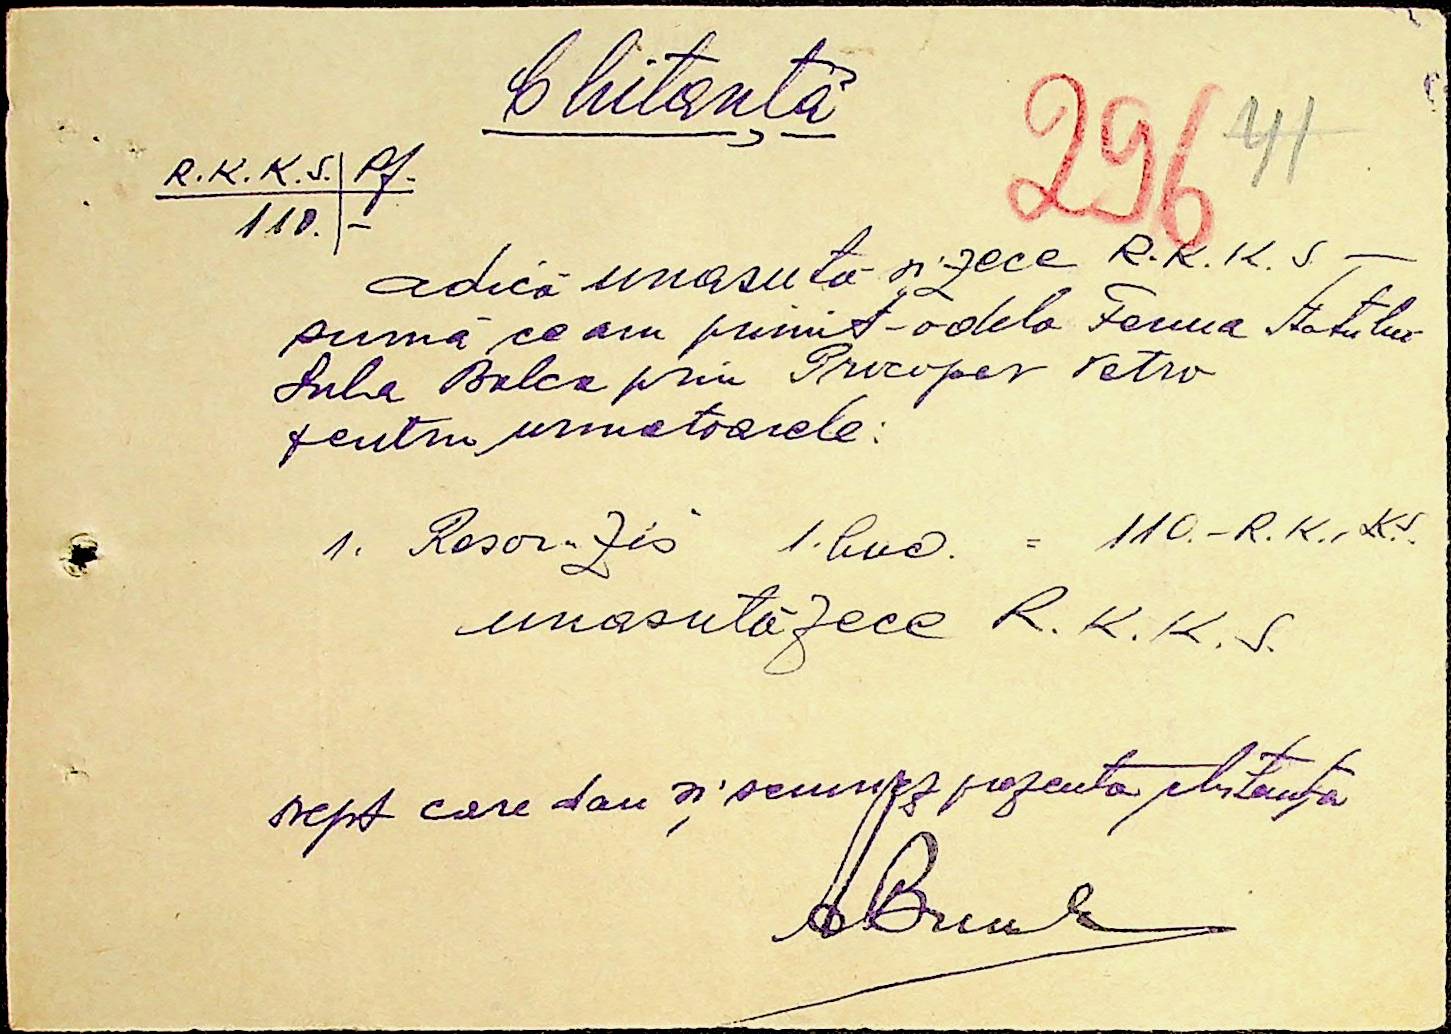 Chitanță
296 41
R.K.K.S. Pf.
110. -
adică unasută și zece R.K.K.S —
sumă ce am primit-o dela Ferma Statului
Balca prin Procoper Petro
pentru urmatoarele:
1. Resor 1. buc. = 110.- R.K.K.S.
unasută zece R.K.K.S.
Drept care dau și semnez prezenta chitanța